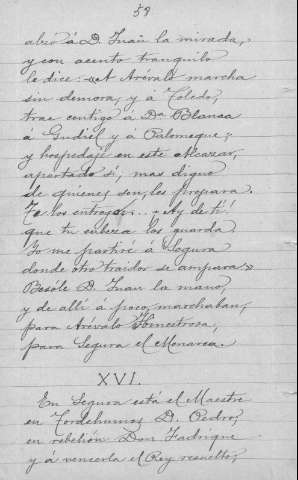 59
alzó á D. Juan la mirada,
y con acento tranquilo
le dice: «A Arévalo marcha
sin demora, y á Toledo,
trae contigo á Dª Blanca
á Gudiel y á Palomeque;
y hospedaje en este Alcazar,
apartado sí, mas digno
de quienes son, les prepara.
Te los entrego... y Ay de tí!
que tu cabeza los guarda
Yo me partiré á Segura
donde otro traidor se ampara»
Besóle D. Juan la mano,
y de allí á poco, marchaban,
para Arévalo Hinestrosa,
para Segura el Monarca.
XVI.
En Segura está el Maestre
en Tordehumos D. Pedro,
en rebelión Don Fadrique
y á vencerla el Rey resuelto;